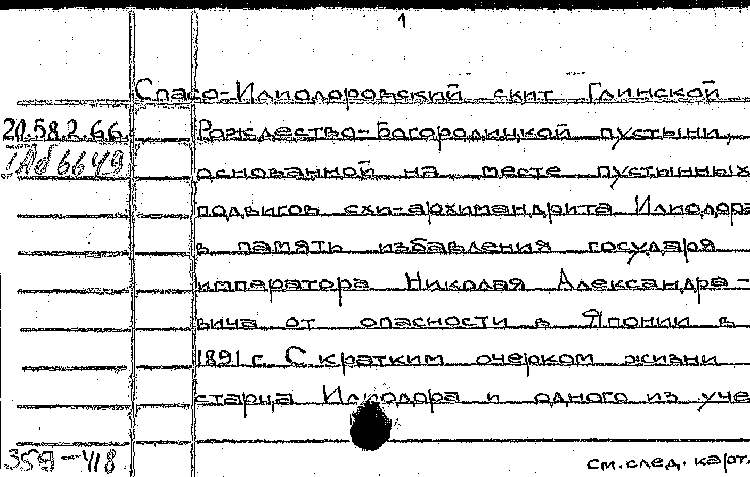 1
Спасо-Илиодоровский скит Глинской
20.58.2.66. Рождество-Богородицкой пустыни,
основанной на месте пустынных
подвигов схи-архимандрита Илиодора
в память избавления государя
императора Николая Александро-
вича от опасности в Японии в
1891 г. С кратким очерком жизни
старца Илиодора и одного из уче
359-418
см. след. карт.